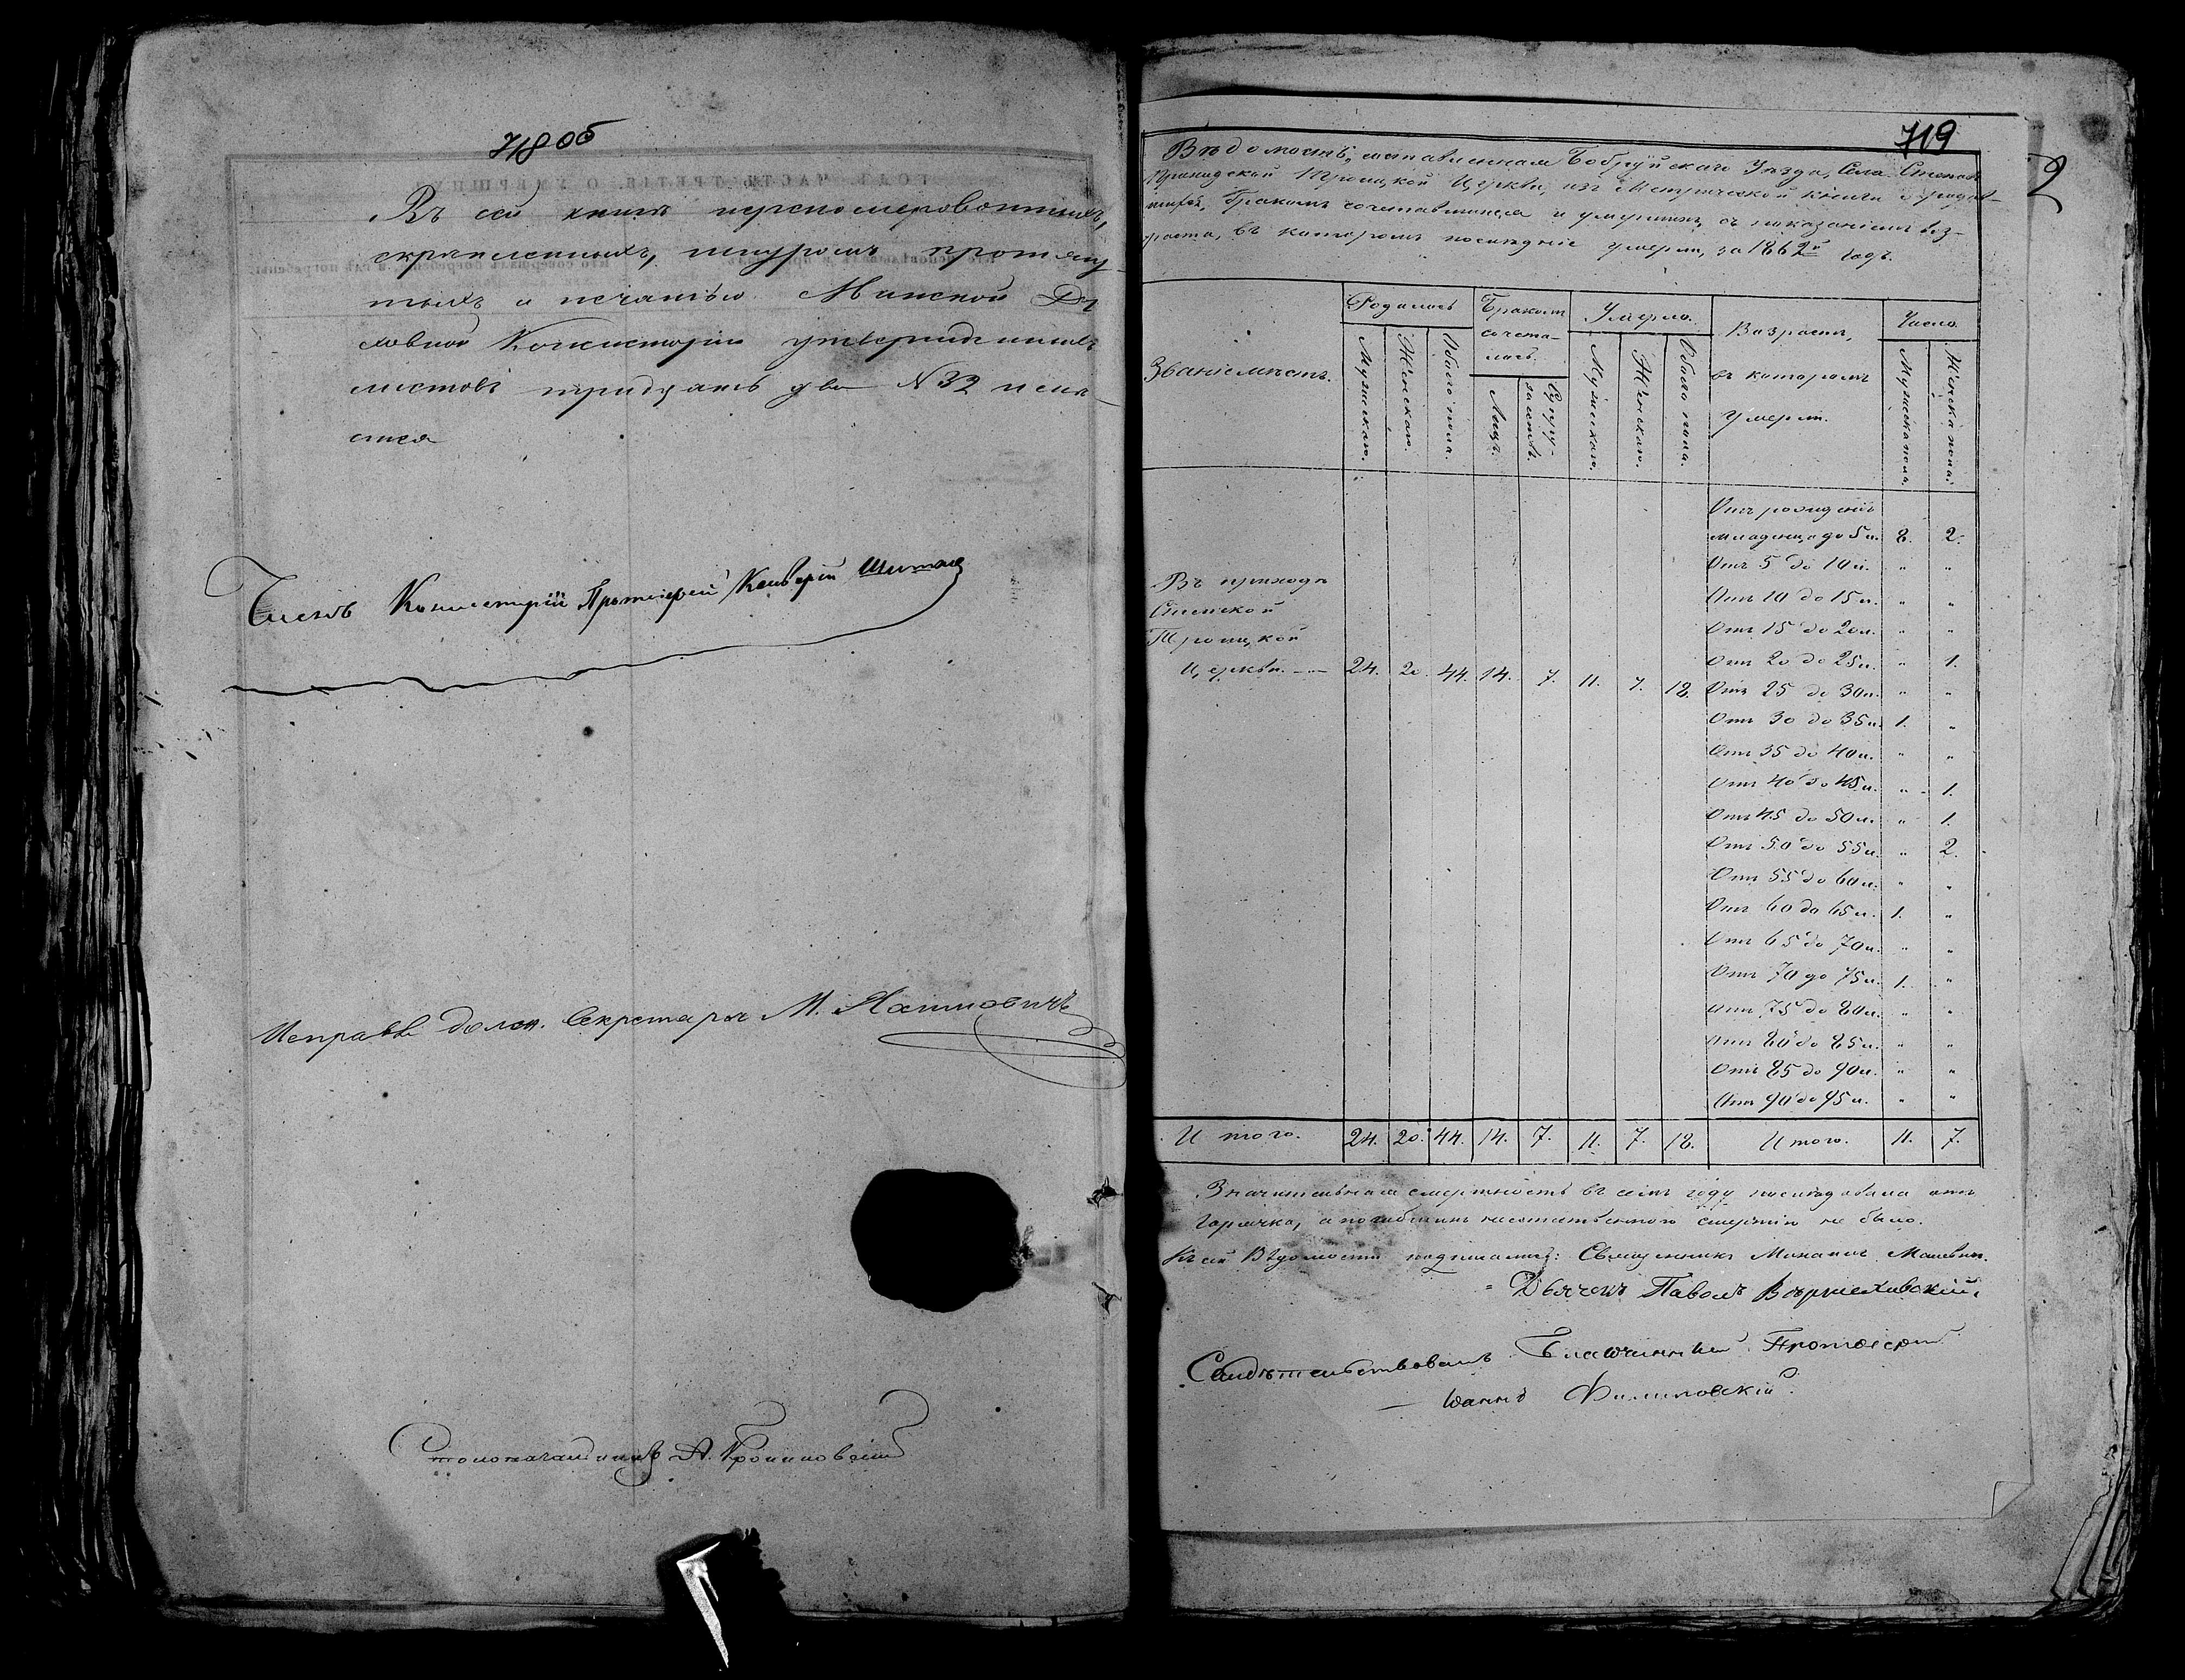 718 об
Въ сей книгѣ перенумерованныхъ,
скрѣпленныхъ, шнуромъ протяну-
тыхъ и печатью Минской Ду
ховной Консисторіи утвержденныхъ
листовъ тридцать два N 32 имѣ-
ется
Членъ Консисторіи Протоіерей
Исправл. долж. Секретаря М.
Столоначальникъ А.
719
2
Вѣдомость, составленная Бобруйскаго Уѣзда, Села
Троицкой Церкви, изъ Метрической книги о родив-
шихся, бракомъ сочетавшихся и умершихъ, съ показаніемъ воз-
раста, въ которомъ послѣдніе умерли, за 1862й годъ.
Званіе мѣстъ.
Родилось
Мужскаго.
Женскаго.
Обоего пола.
Бракомъ
сочета-
лось.
Лицъ.
Супру-
жествъ.
Умерло.
Мужскаго.
Женскаго.
Обоего пола.
Возрастъ,
въ которомъ
умерли.
Число.
Мужскаго пола
Женскаго пола
Отъ рожденія
младенца до 5 л. 8. 2.
Отъ 5 до 10 л. " "
Отъ 10 до 15 л. " "
Отъ 15 до 20 л. " "
Отъ 20 до 25 л. " 1.
Отъ 25 до 30 л. " "
Отъ 30 до 35 л. 1. "
Отъ 35 до 40 л. " "
Отъ 40 до 45 л. " 1.
Отъ 45 до 50 л. " 1.
Отъ 50 до 55 л. " 2.
Отъ 55 до 60 л. " "
Отъ 60 до 65 л. 1. "
Отъ 65 до 70 л. " "
Отъ 70 до 75 л. 1. "
Отъ 75 до 80 л. " "
Отъ 80 до 85 л. " "
Отъ 85 до 90 л. " "
Отъ 90 до 95 л. " "
Въ приходѣ
Троицкой
Церкви. 24. 20. 44. 14. 7. 11. 7. 18.
Итого. 24. 20. 44. 14. 7. 11. 7. 18. Итого. 11. 7.
Значительная смертность въ семъ году послѣдовала отъ
горячки, а погибшихъ неестественною смертію не было.
Къ сей Вѣдомости подписались: Священникъ Михаилъ
" Дьячекъ Павелъ
Свидѣтельствовалъ Благочинный Протоіерей
Іоаннъ Филиповскій.